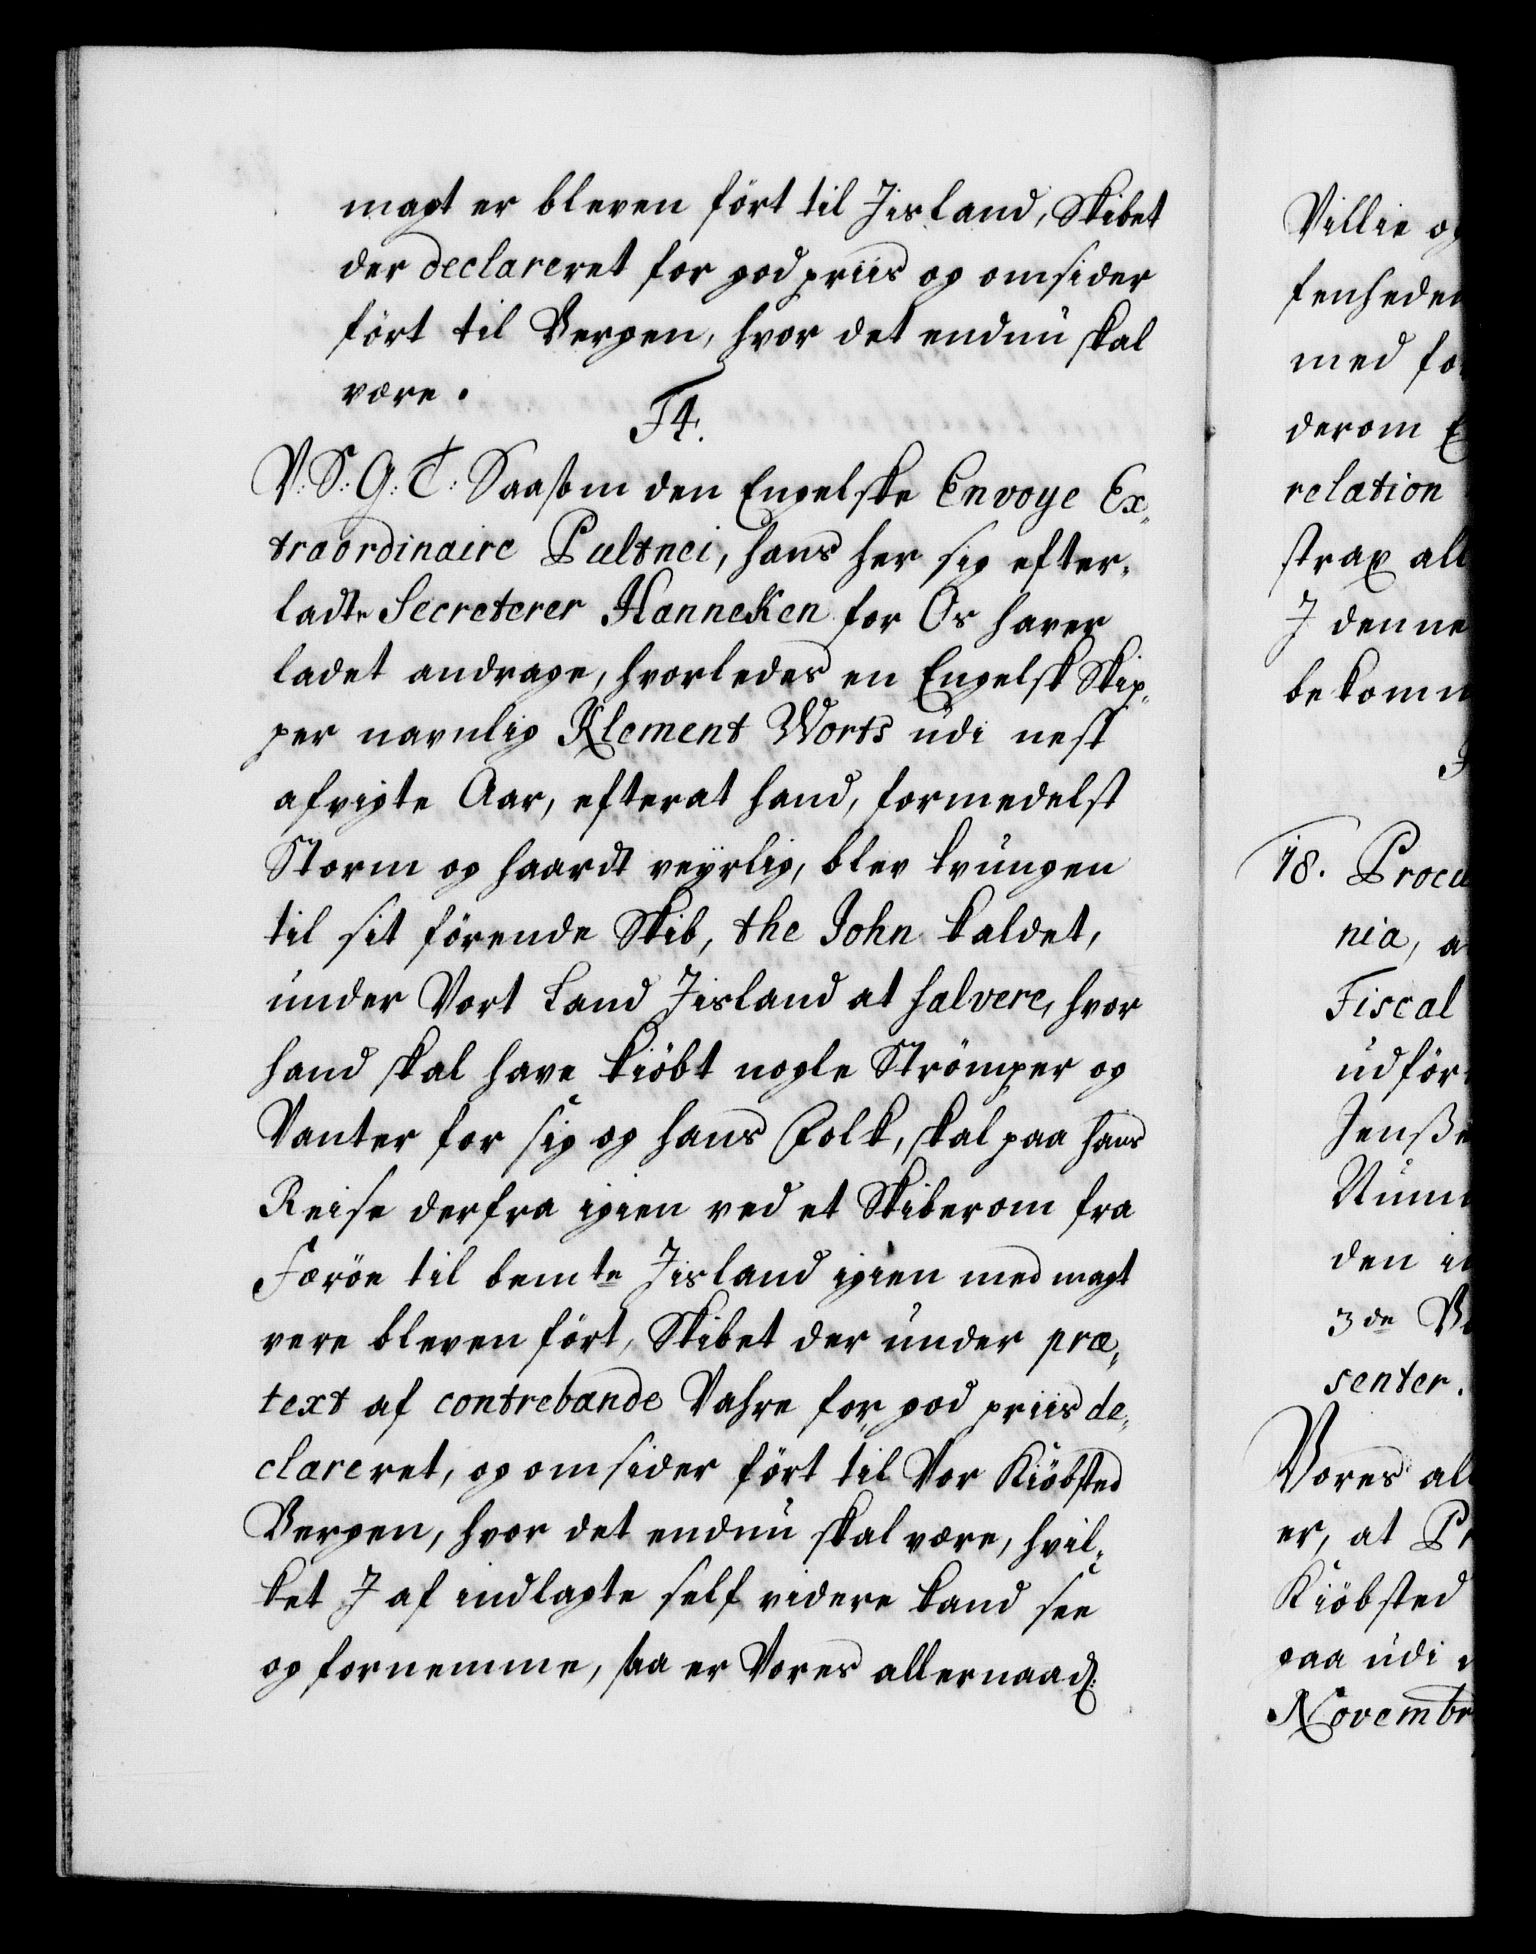 magt er bleven fört til Jisland, Skibet
der declareret for god priis og omsider
fört til Bergen, hvor det endnu skal
være.
F4.
V: S: G: T: Saasom den Engelske Envoye Ex„
traordinaire Pultnei, hans her sig efter„
ladte Secreterer Hanneken for Os haver
ladet andrage, hvorledes en Engelsk Skip„
per navnlig Klement Worts udi nest
afvigte Aar, efterat hand, formedelst
Storm og haardt veyrlig, blev tvungen
til sit förende Skib, the John kaldet,
under Vort Land Jisland at halvere, hvor
hand skal have kiöbt nogle Strömper og
Vanter for sig og hans Folk, skal paa hans
Reise derfra igien ved et Skiberom fra
Færöe til bemte Jisland igien med magt
være bleven fört, Skibet der under præ„
text af contrebande Vahre for god priis de„
clareret, og omsider fört til Vor Kiöbsted
Bergen, hvor det endnu skal være, hvil„
ket J af indlagte self videre kand see
og fornemme, saa er Vores allernaad:
Villie og
fenheden
med fo
derom E
relation
strax all
J denne
bekomm
18. Procu
nia, a
Fiscal
udför
Jenße
Numm
den i
3de V
senter.
Vores all
er, at Pr
Kiöbsted
paa udi
Novembr